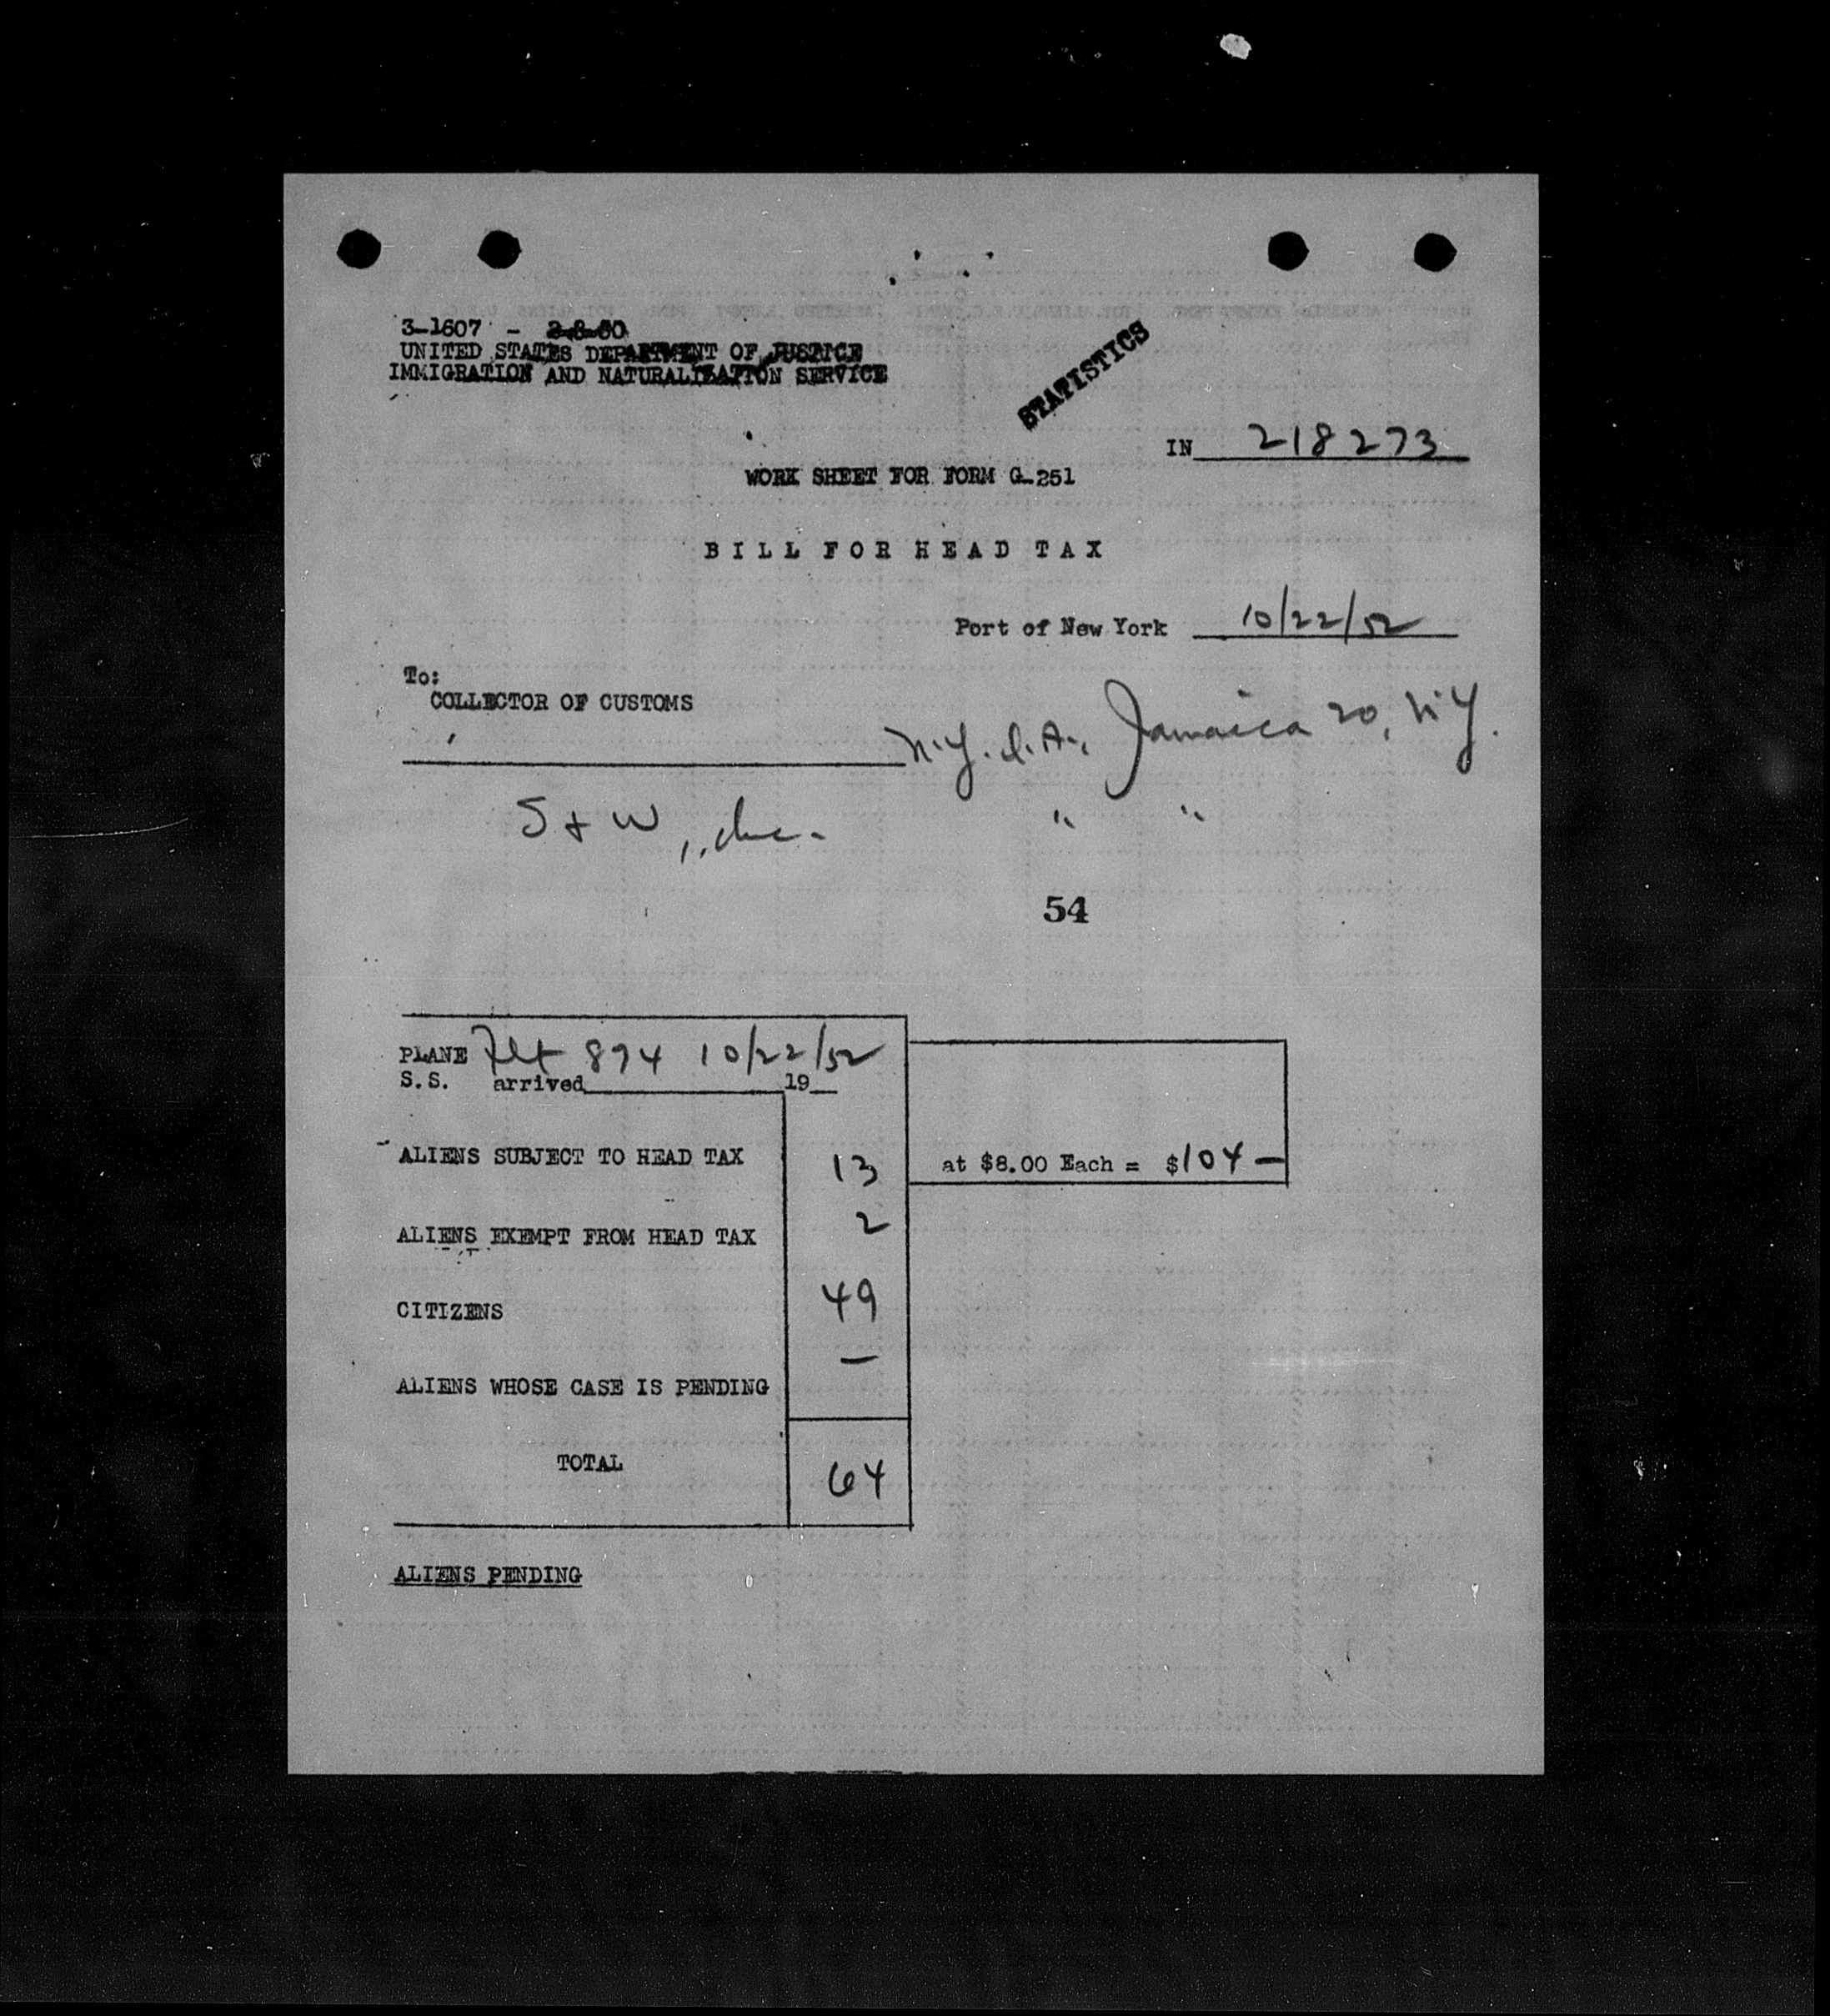 3-1607 - 2-8-50
UNITED STATES DEPARTMENT OF JUSTICE
IMMIGRATION AND NATURALIZATION SERVICE
STATISTICS
IN 218273
WORK SHEET FOR FORM G-251
BILL FOR HEAD TAX
Port of New York 10/22/52
To:
COLLECTOR OF CUSTOMS
N.Y.I.A., Jamaica 20, N.Y.
S & W, Inc. " "
54
PLANE Flt 894 10/22/52
S.S. arrived 19
ALIENS SUBJECT TO HEAD TAX 13 at $8.00 Each = $104 —
ALIENS EXEMPT FROM HEAD TAX 2
CITIZENS 49
ALIENS WHOSE CASE IS PENDING —
TOTAL 64
ALIENS PENDING